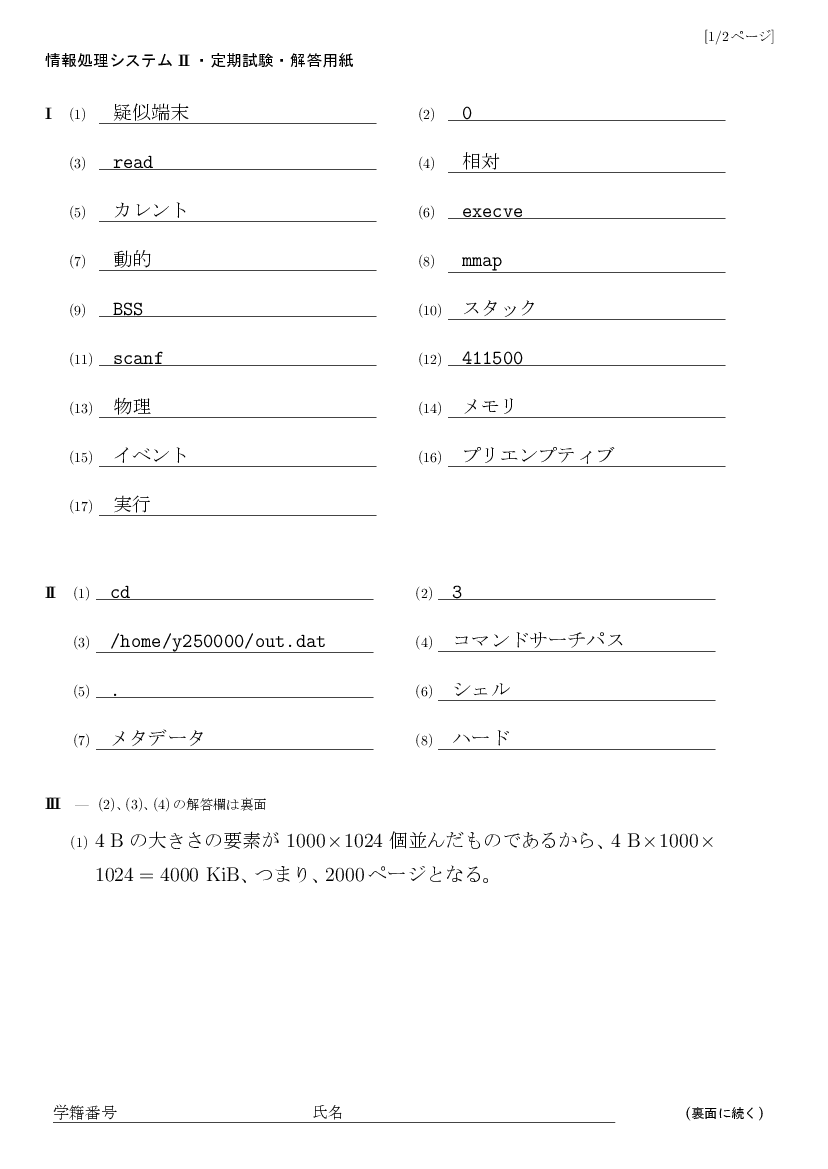 [1/2ページ]
情報処理システム II ・定期試験・解答用紙
I (1) 疑似端末 (2) 0
(3) read (4) 相対
(5) カレント (6) execve
(7) 動的 (8) mmap
(9) BSS (10) スタック
(11) scanf (12) 411500
(13) 物理 (14) メモリ
(15) イベント (16) プリエンプティブ
(17) 実行
II (1) cd (2) 3
(3) /home/y250000/out.dat (4) コマンドサーチパス
(5) . (6) シェル
(7) メタデータ (8) ハード
III — (2)、(3)、(4)の解答欄は裏面
(1) 4 B の大きさの要素が 1000×1024 個並んだものであるから、4 B×1000×
1024 = 4000 KiB、つまり、2000ページとなる。
学籍番号 氏名 (裏面に続く)